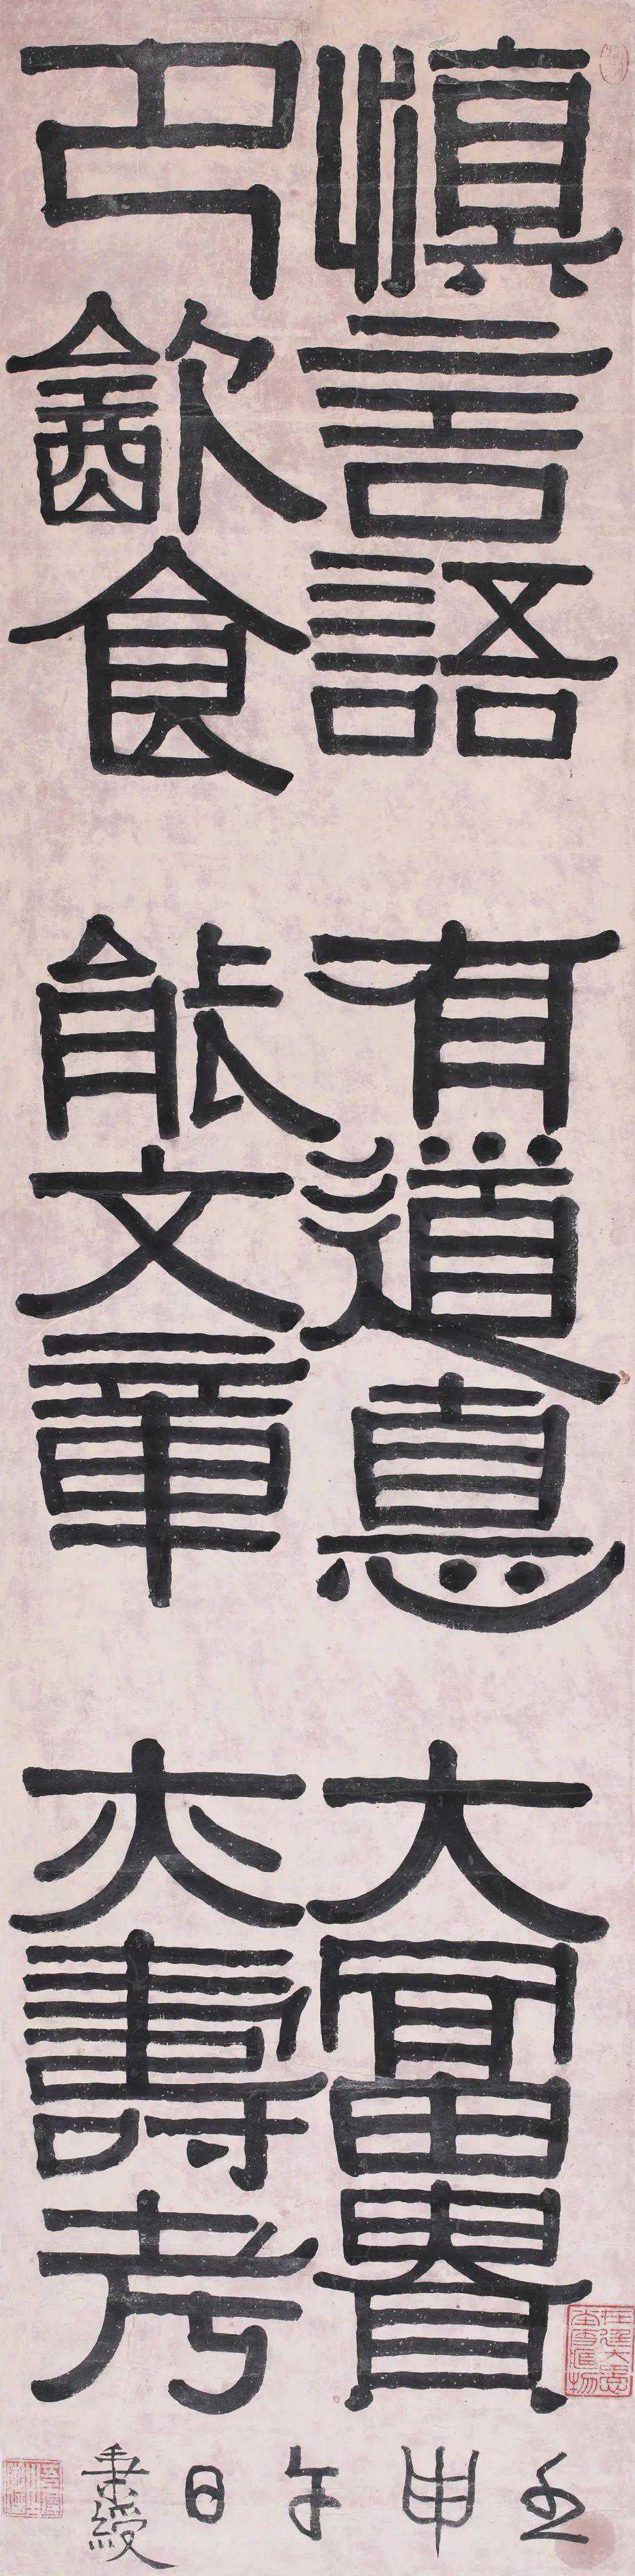 慎言語
卪飲食
有道悳
能文章
大富貴
亦壽考
壬申午日秉綬